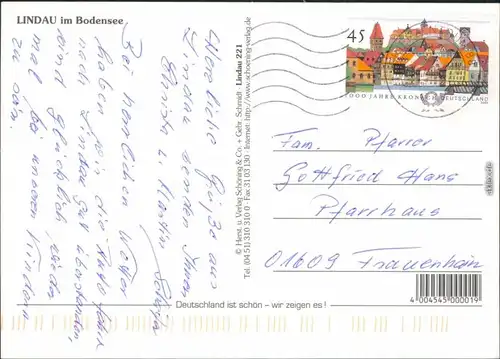 LINDAU im Bodensee
Herzliche Grüße aus
Lindau senden Ihnen
Gerda u. Martin
Bei herrlichem Wetter
haben wir die Autofahrt
nach Lindau gut überstanden,
sind glücklich, wieder
mal bei unseren Kindern
zu sein.
© Herst. u. Verlag Schöning & Co. + Gebr. Schmidt Lindau 221
Tel. (04 51) 310 310 0 · Fax 31 03 130 · Internet: http://www.schoening-verlag.de
45
1000 JAHRE KRONACH
DEUTSCHLAND
Fam. Pfarrer
Gottfried Hans
Pfarrhaus
01609 Frauenhain
4 004545 000019
Deutschland ist schön – wir zeigen es !